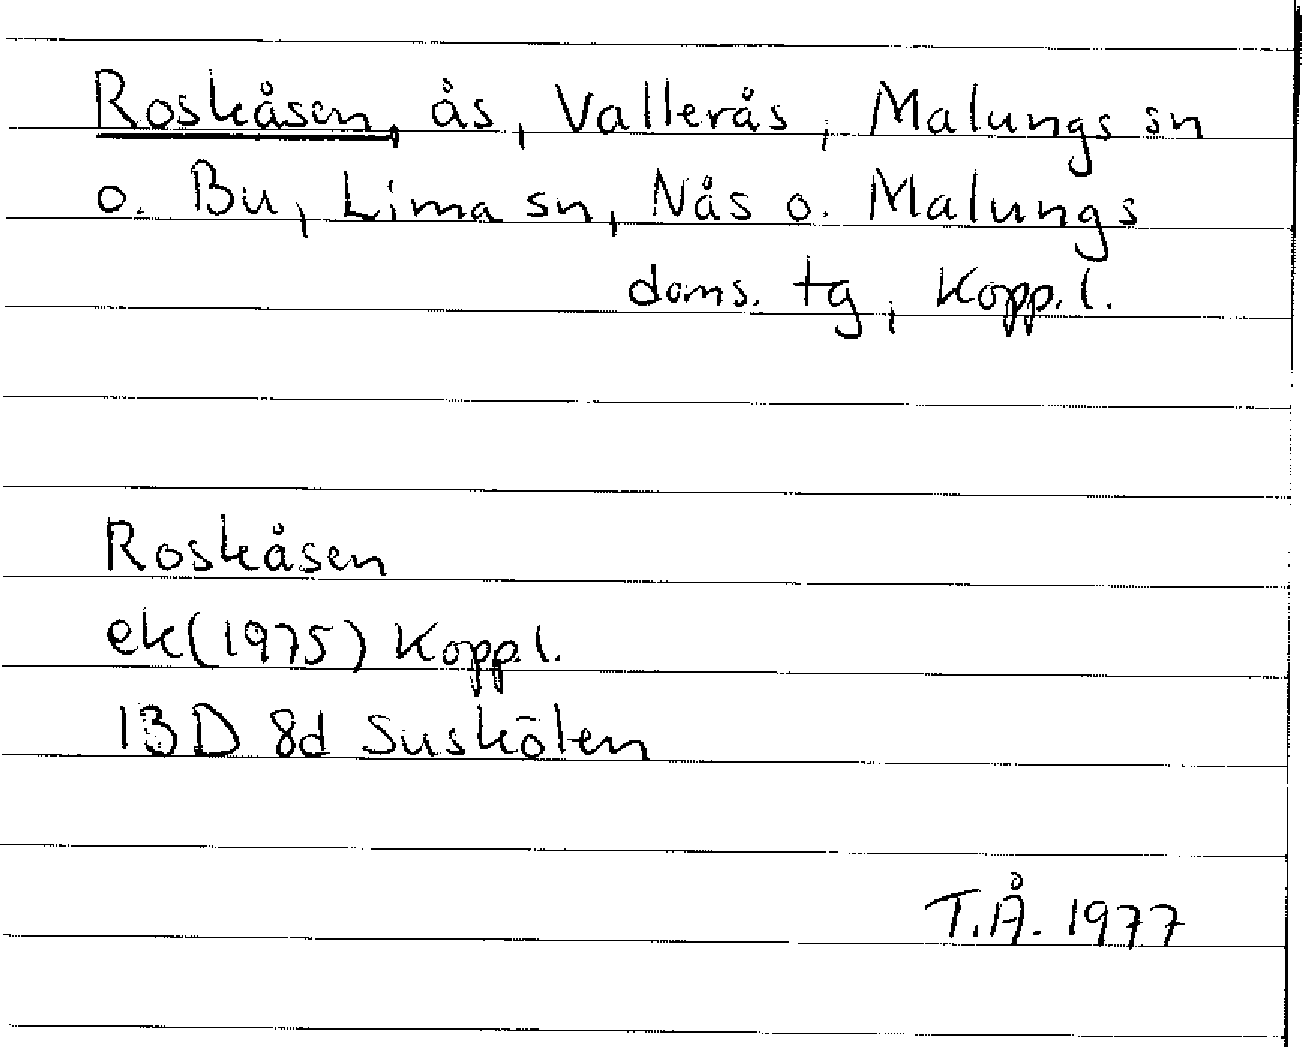 Roskåsen, ås, Vallerås, Malungs sn
o. Bu, Lima sn, Nås o. Malungs
doms. tg, Kopp. l.
Roskåsen
ek (1975) Kopp.l.
13D 8d Suskölen
T.Å. 1977